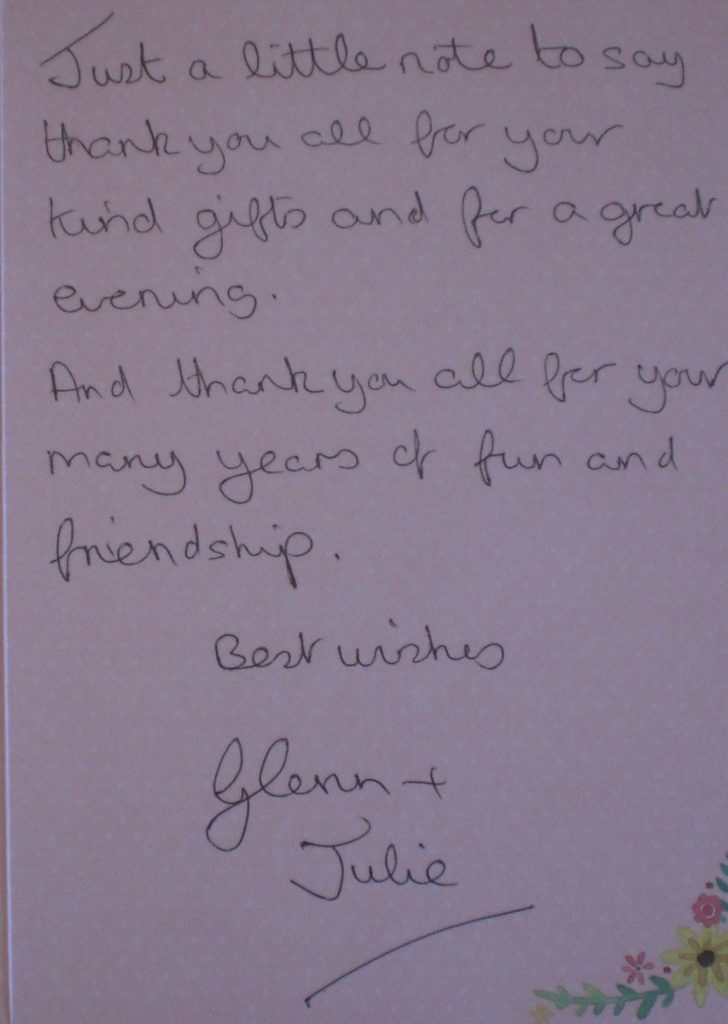 Just a little note to say
thank you all for your
kind gifts and for a great
evening.
And thank you all for your
many years of fun and
friendship.
Best wishes
Glenn +
Julie